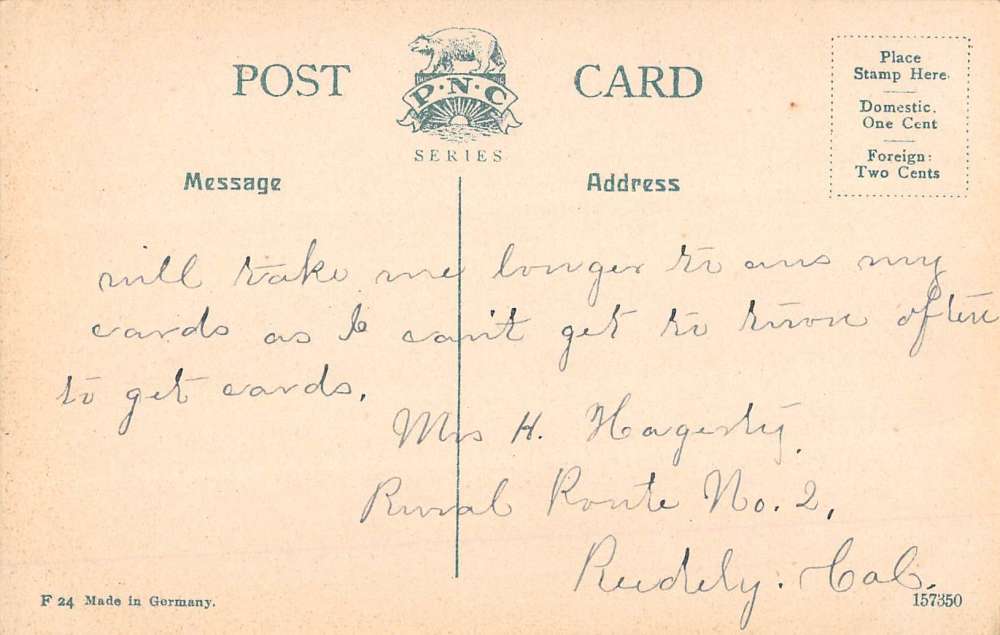 POST CARD
P·N·C
SERIES
Place
Stamp Here
Domestic.
One Cent
Foreign:
Two Cents
Message
Address
will take me longer to ans my
cards as I can't get to town often
to get cards.
Mrs H. Hagerty.
Rural Route No. 2,
Reedely. Cal.
F 24 Made in Germany.
157350